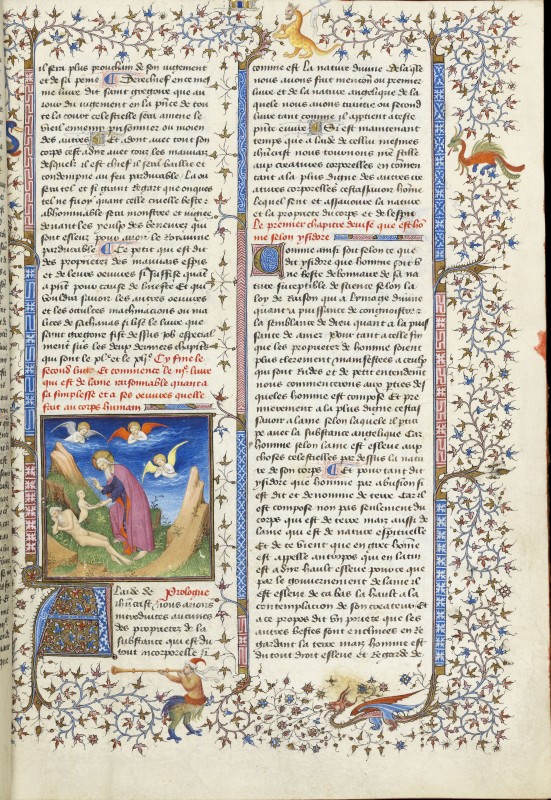 il sera plus prouchain de son iugement
et de sa peine Derechief en ce mes
me liure dit saint gregoire que au
iour du iugement en la pñce de tou
te la court celestiele sera amene le
viel ennemy prisonnier ou moien
des autres Et donc auec tout son
corps cest adire auec tous les mauuais
desquelx il est chief il sera baillie et
condempne au feu pardurable La ou
sera tel et si grant regart que onques
tel ne fu ou quant celle cruelle beste
abhominable sera monstree
deuant les yeulx des beneurez qui
sont esleuz pour auoir le royaume
pardurable Ce petit qui est dit
des proprietez des mauuais esperis
et de leurs oeuures si souffise quant
a pñt pour cause de briefte Et qui
vouldra sauoir les autres oeuures
et les occultes machinacions ou ma
lices de sathanas si lise le liure que
saint gregoire fist dessus iob especial
ment sus les deux derniers chapitres
qui sont le xl.e et le xlj.e Cy fine le
second liure Et commence le iij.e liure
qui est de lame raisonnable quant a
sa simplesse et a ses oeuures quelle
fait au corps humain
Prologue
A laide de
ihũcrist nous auons
introduites aucunes
des proprietez de la
substance qui est du
tout incorporelle si
comme est la nature diuine De la qle
nous auons fait mencion ou premier
liure et de la nature angelique de la
quele nous auons traictie ou second
liure tant comme il appartient a ceste
pñte euure Si est maintenant
temps que a laide de cellui mesmes
ihũcrist nous tournons nr̃e stille
aux creatures corporelles en comen
cant a la plus digne des autres cre
atures corporelles cest assauoir home
lequel sent et assauoure la nature
et la propriete du corps et de lesprit
Le premier chapitre deuise que est hõ
me selon ysidore
Comme ainsi soit selon ce que
dit ysidore que homme soit v
ne beste debonnaire de sa na
ture susceptible de science selon la
loy de raison qui a lymage diuine
quant a puissance de congnoistre
la semblance de dieu quant a la puis
sance de amer Pour tant a celle fin
que les proprietez de homme soient
plus clerement manifestees a ceulx
qui sont rudes et de petit entendement
nous commencerons aux pties des
queles homme est compose Et pre
mierement a la plus digne cest as
sauoir a lame selon laquele il partici
pe auec la substance angelique Car
homme selon lame est esleue aux
choses celestielles par dessus la natu
re de son corps Et pour tant dit
ysidore que homme par abusion
est dit et denomme de terre Car il
est compose non pas seulement du
corps qui est de terre mais aussi de
lame qui est de nature espirituelle
Et de ce vient que en grec homme
est appelle antropos qui en latin
est a dire hault esleue pour ce que
par le gouuernement de lame il
est esleue de ca bas la hault a la
contemplacion de son createur Et
a ce propos dit vn poete que les
autres bestes sont enclinees en re
gardant la terre mais homme est
du tout droit esleue et regarde de